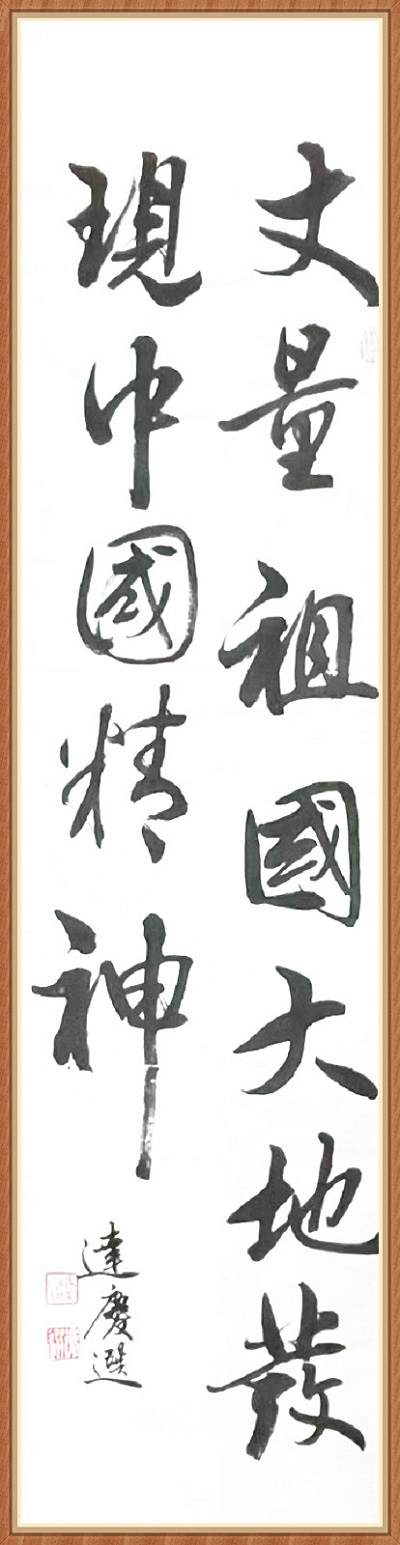 丈量祖國大地發
現中國精神
達慶選